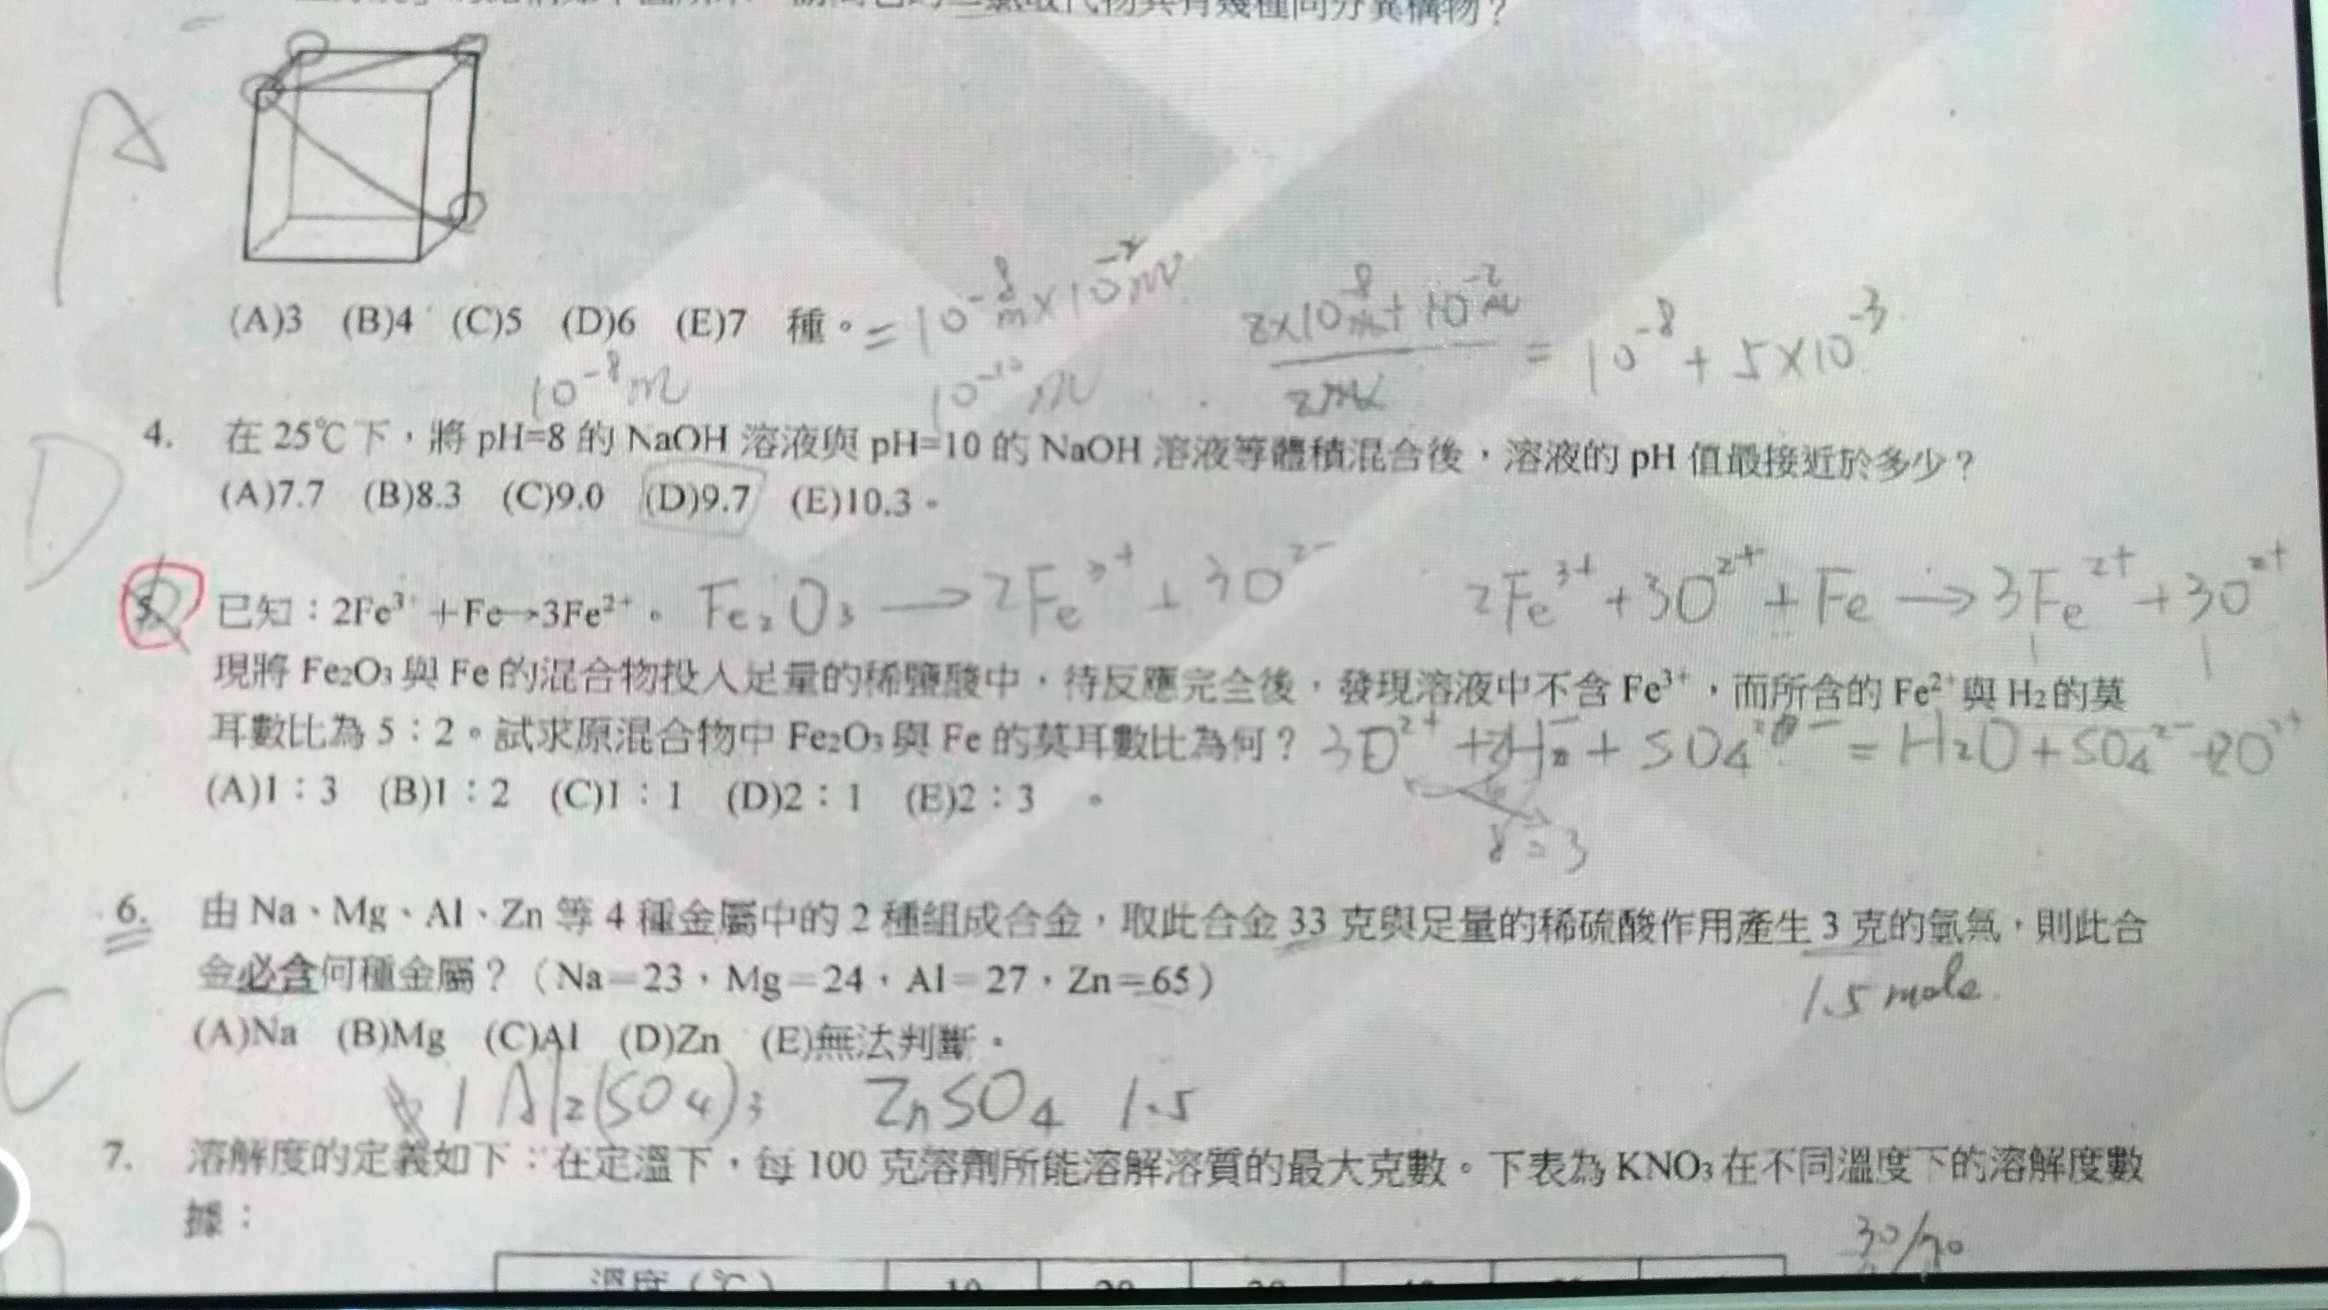 三氯取代物共有幾種同分異構物?
A
(A)3 (B)4 (C)5 (D)6 (E)7 種。
2×10⁻⁸ + 10⁻² = 10⁻⁸ + 5×10⁻³
10⁻⁸m 10⁻¹⁰m
D
4. 在 25℃下,將 pH=8 的 NaOH 溶液與 pH=10 的 NaOH 溶液等體積混合後,溶液的 pH 值最接近於多少?
(A)7.7 (B)8.3 (C)9.0 (D)9.7 (E)10.3。
5. 已知:2Fe³⁺+Fe→3Fe²⁺。 Fe₂O₃ → 2Fe³⁺ + 3O²⁻ 2Fe³⁺ + 3O²⁺ + Fe → 3Fe²⁺ + 3O²⁺
現將 Fe₂O₃ 與 Fe 的混合物投入足量的稀鹽酸中,待反應完全後,發現溶液中不含 Fe³⁺,而所含的 Fe²⁺ 與 H₂ 的莫
耳數比為 5:2。試求原混合物中 Fe₂O₃ 與 Fe 的莫耳數比為何?
(A)1:3 (B)1:2 (C)1:1 (D)2:1 (E)2:3 。
6. 由 Na、Mg、Al、Zn 等 4 種金屬中的 2 種組成合金,取此合金 33 克與足量的稀硫酸作用產生 3 克的氫氣,則此合
金必含何種金屬?(Na=23,Mg=24,Al=27,Zn=65)
1.5 mole
C
(A)Na (B)Mg (C)Al (D)Zn (E)無法判斷。
1 Al₂(SO₄)₃ ZnSO₄ 1.5
7. 溶解度的定義如下:在定溫下,每 100 克溶劑所能溶解溶質的最大克數。下表為 KNO₃ 在不同溫度下的溶解度數
據:
溫度(℃)